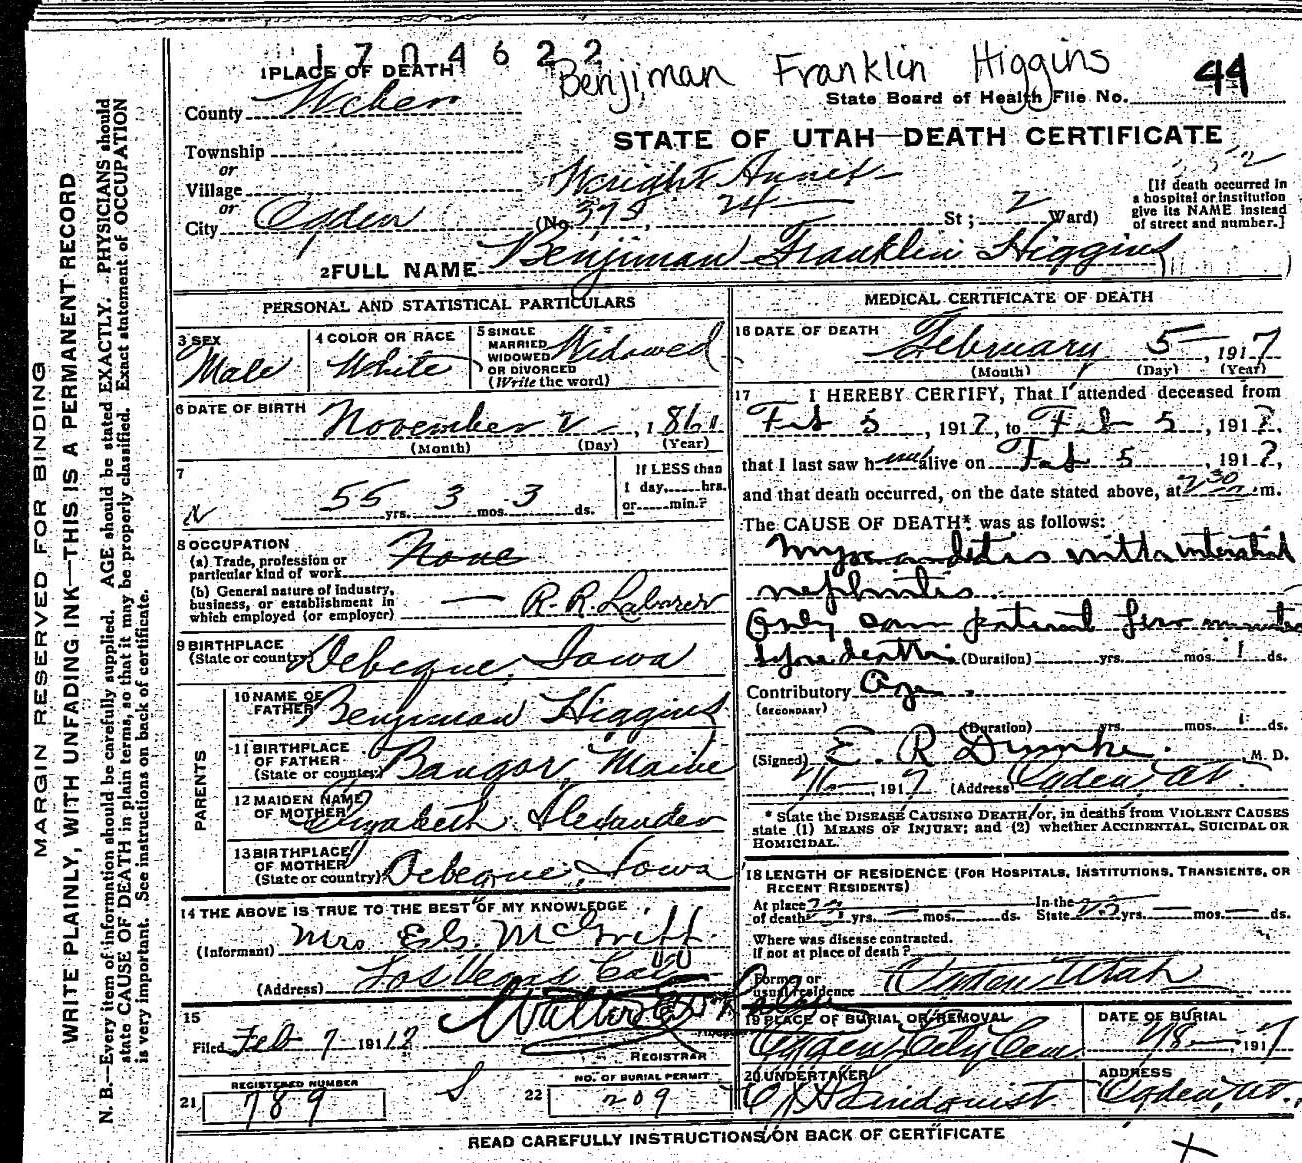 1704622
Benjiman Franklin Higgins
44
1 PLACE OF DEATH
County Weber
State Board of Health File No.
STATE OF UTAH—DEATH CERTIFICATE
Township
or
Village
Wright Annex
or
City Ogden (No. 375, 24 St; 2 Ward)
[If death occurred in
a hospital or institution
give its NAME instead
of street and number.]
2 FULL NAME Benjiman Franklin Higgins
PERSONAL AND STATISTICAL PARTICULARS
3 SEX
Male
4 COLOR OR RACE
White
5 SINGLE
MARRIED
WIDOWED
OR DIVORCED
(Write the word)
Widowed
6 DATE OF BIRTH
November 2, 1861
(Month) (Day) (Year)
7
55 yrs. 3 mos. 3 ds.
If LESS than
1 day,......hrs.
or......min.?
8 OCCUPATION
(a) Trade, profession or
particular kind of work None
(b) General nature of industry,
business, or establishment in
which employed (or employer) R.R. Laborer
9 BIRTHPLACE
(State or country) Debeque, Iowa
PARENTS
10 NAME OF
FATHER Benjiman Higgins
11 BIRTHPLACE
OF FATHER
(State or country) Bangor, Maine
12 MAIDEN NAME
OF MOTHER Elizabeth Alexander
13 BIRTHPLACE
OF MOTHER
(State or country) Debeque, Iowa
14 THE ABOVE IS TRUE TO THE BEST OF MY KNOWLEDGE
(Informant) Mrs
(Address) Los Vegas
15
Filed Feb 7 191
REGISTRAR
REGISTERED NUMBER
21 789
NO. OF BURIAL PERMIT
22 209
MEDICAL CERTIFICATE OF DEATH
16 DATE OF DEATH
February 5, 1917
(Month) (Day) (Year)
17 I HEREBY CERTIFY, That I attended deceased from
Feb 5, 1917, to Feb 5, 1917,
that I last saw him alive on Feb 5, 1917,
and that death occurred, on the date stated above, at 730 m.
The CAUSE OF DEATH* was as follows:
Myocarditis with interstitial
nephritis
Only saw patient few minutes
before death. (Duration) yrs. mos. 1 ds.
Contributory Age.
(SECONDARY)
(Duration) yrs. mos. 1 ds.
(Signed) E. R. Dumke, M. D.
1917 (Address) Ogden, Ut.
* State the DISEASE CAUSING DEATH, or, in deaths from VIOLENT CAUSES
state (1) MEANS OF INJURY; and (2) whether ACCIDENTAL, SUICIDAL OR
HOMICIDAL.
18 LENGTH OF RESIDENCE (FOR HOSPITALS, INSTITUTIONS, TRANSIENTS, OR
RECENT RESIDENTS)
At place
of death yrs. mos. ds. In the State 25 yrs. mos. ds.
Where was disease contracted.
If not at place of death?
Former or
usual residence Utah
19 PLACE OF BURIAL OR REMOVAL
Ogden City Cem.
DATE OF BURIAL
2/8, 1917
20 UNDERTAKER
Lindquist
ADDRESS
Ogden, Ut.
READ CAREFULLY INSTRUCTIONS ON BACK OF CERTIFICATE
MARGIN RESERVED FOR BINDING
WRITE PLAINLY, WITH UNFADING INK—THIS IS A PERMANENT RECORD
N. B.—Every item of information should be carefully supplied. AGE should be stated EXACTLY. PHYSICIANS should
state CAUSE OF DEATH in plain terms, so that it may be properly classified. Exact statement of OCCUPATION
is very important. See instructions on back of certificate.